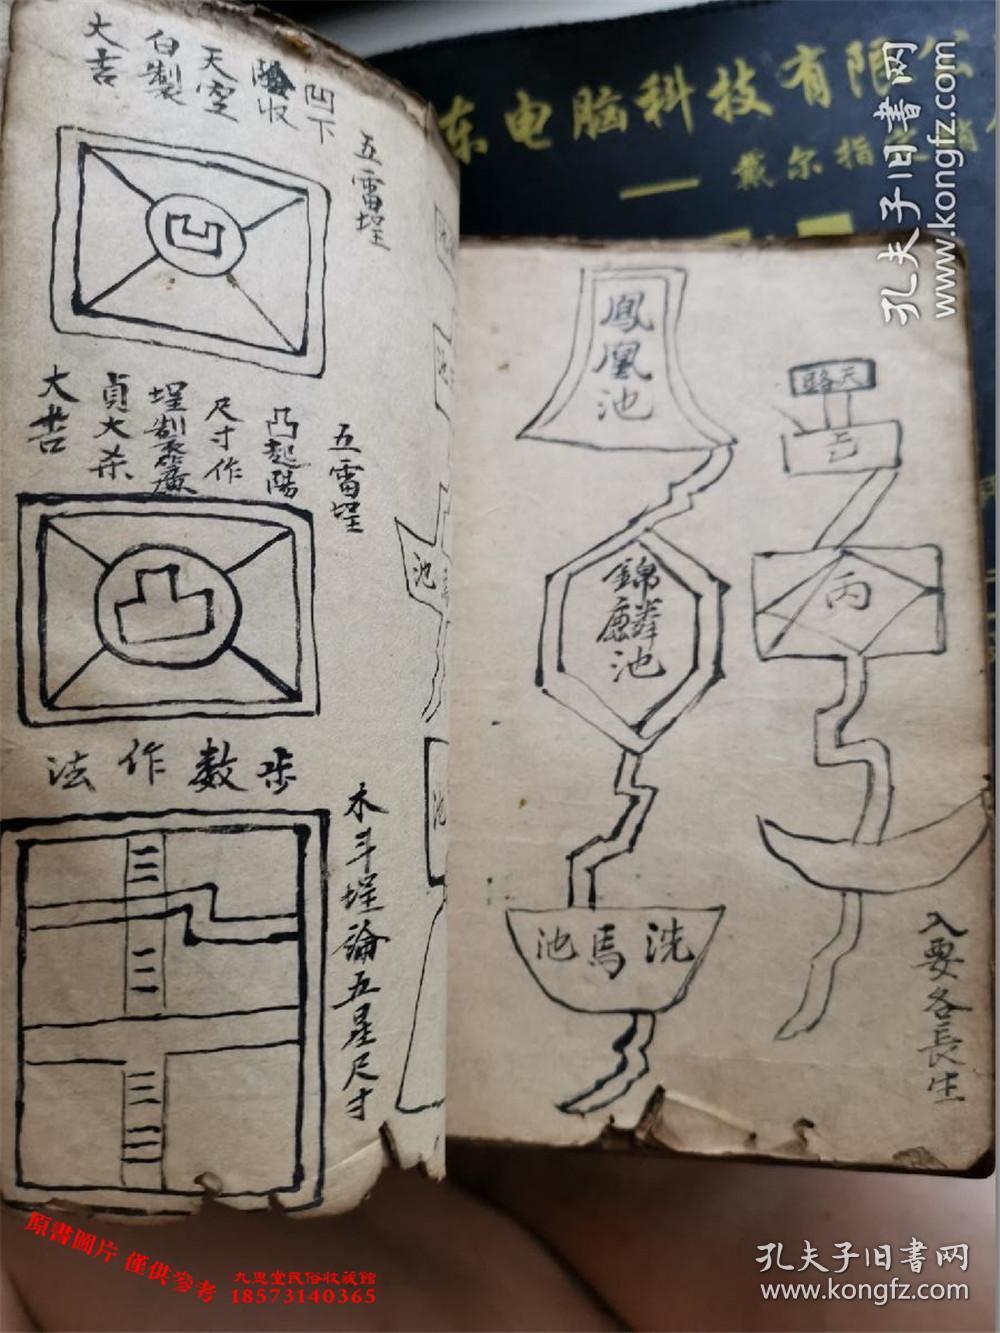 凹下
收
天空
白製
大吉
五雷埕
凸起陽
尺寸作
埕製
貞大杀
大吉
五雷埕
步數作法
木斗埕論五星尺寸
池
池
鳳凰池
錦麟池
洗馬池
天路
丙
入要各長生
东电脑科技有限公
戴尔指
孔夫子旧书网
www.kongfz.com
原書圖片 僅供參考
九思堂民俗收藏館
18573140365
孔夫子旧书网
www.kongfz.com